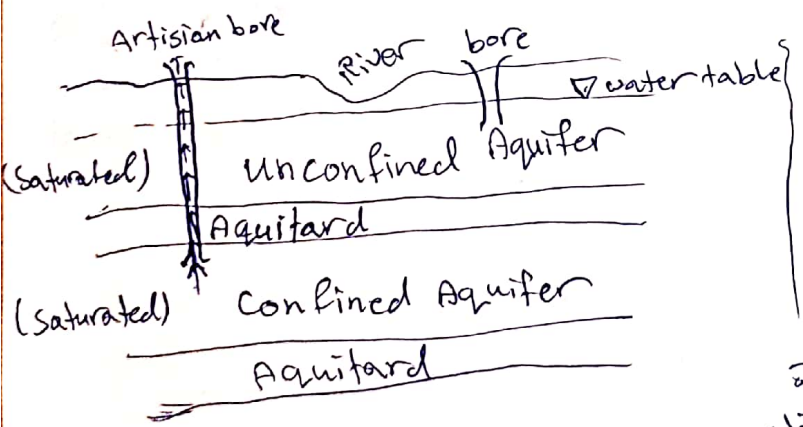 Artisian bore
River
bore
water table
(Saturated)
Unconfined Aquifer
Aquitard
(Saturated)
Confined Aquifer
Aquitard